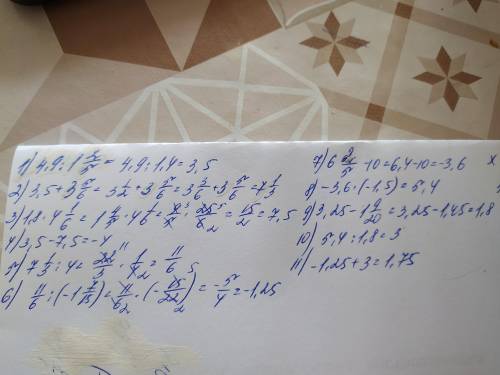 1) 4,9 : 1 2/5 = 4,9 : 1,4 = 3,5
2) 3,5 + 3 5/6 = 3 1/2 + 3 5/6 = 3 3/6 + 3 5/6 = 7 1/3
3) 1,8 · 4 1/6 = 1 4/5 · 4 1/6 = 9/5 · 25/6 = 15/2 = 7,5
4) 3,5 - 7,5 = -4
5) 7 1/3 : 4 = 22/3 · 1/4 = 11/6
6) 11/6 : (-1 7/15) = 11/6 · (-15/22) = -5/4 = -1,25
7) 6 2/5 - 10 = 6,4 - 10 = -3,6
8) -3,6 · (-1,5) = 5,4
9) 3,25 - 1 9/20 = 3,25 - 1,45 = 1,8
10) 5,4 : 1,8 = 3
11) -1,25 + 3 = 1,75
x